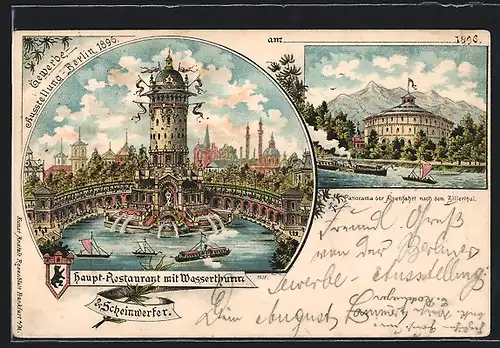 Gewerbe
Ausstellung-Berlin 1896.
am 1896.
Haupt-Restaurant mit Wasserthurm
& Scheinwerfer.
Panorama der Alpenfahrt nach dem Zillerthal.
Kunst Anstalt Rosenblatt Frankfurt a/M.
Freundl. Gruß
von der Berliner
Gewerbe-Ausstellung
Dein August